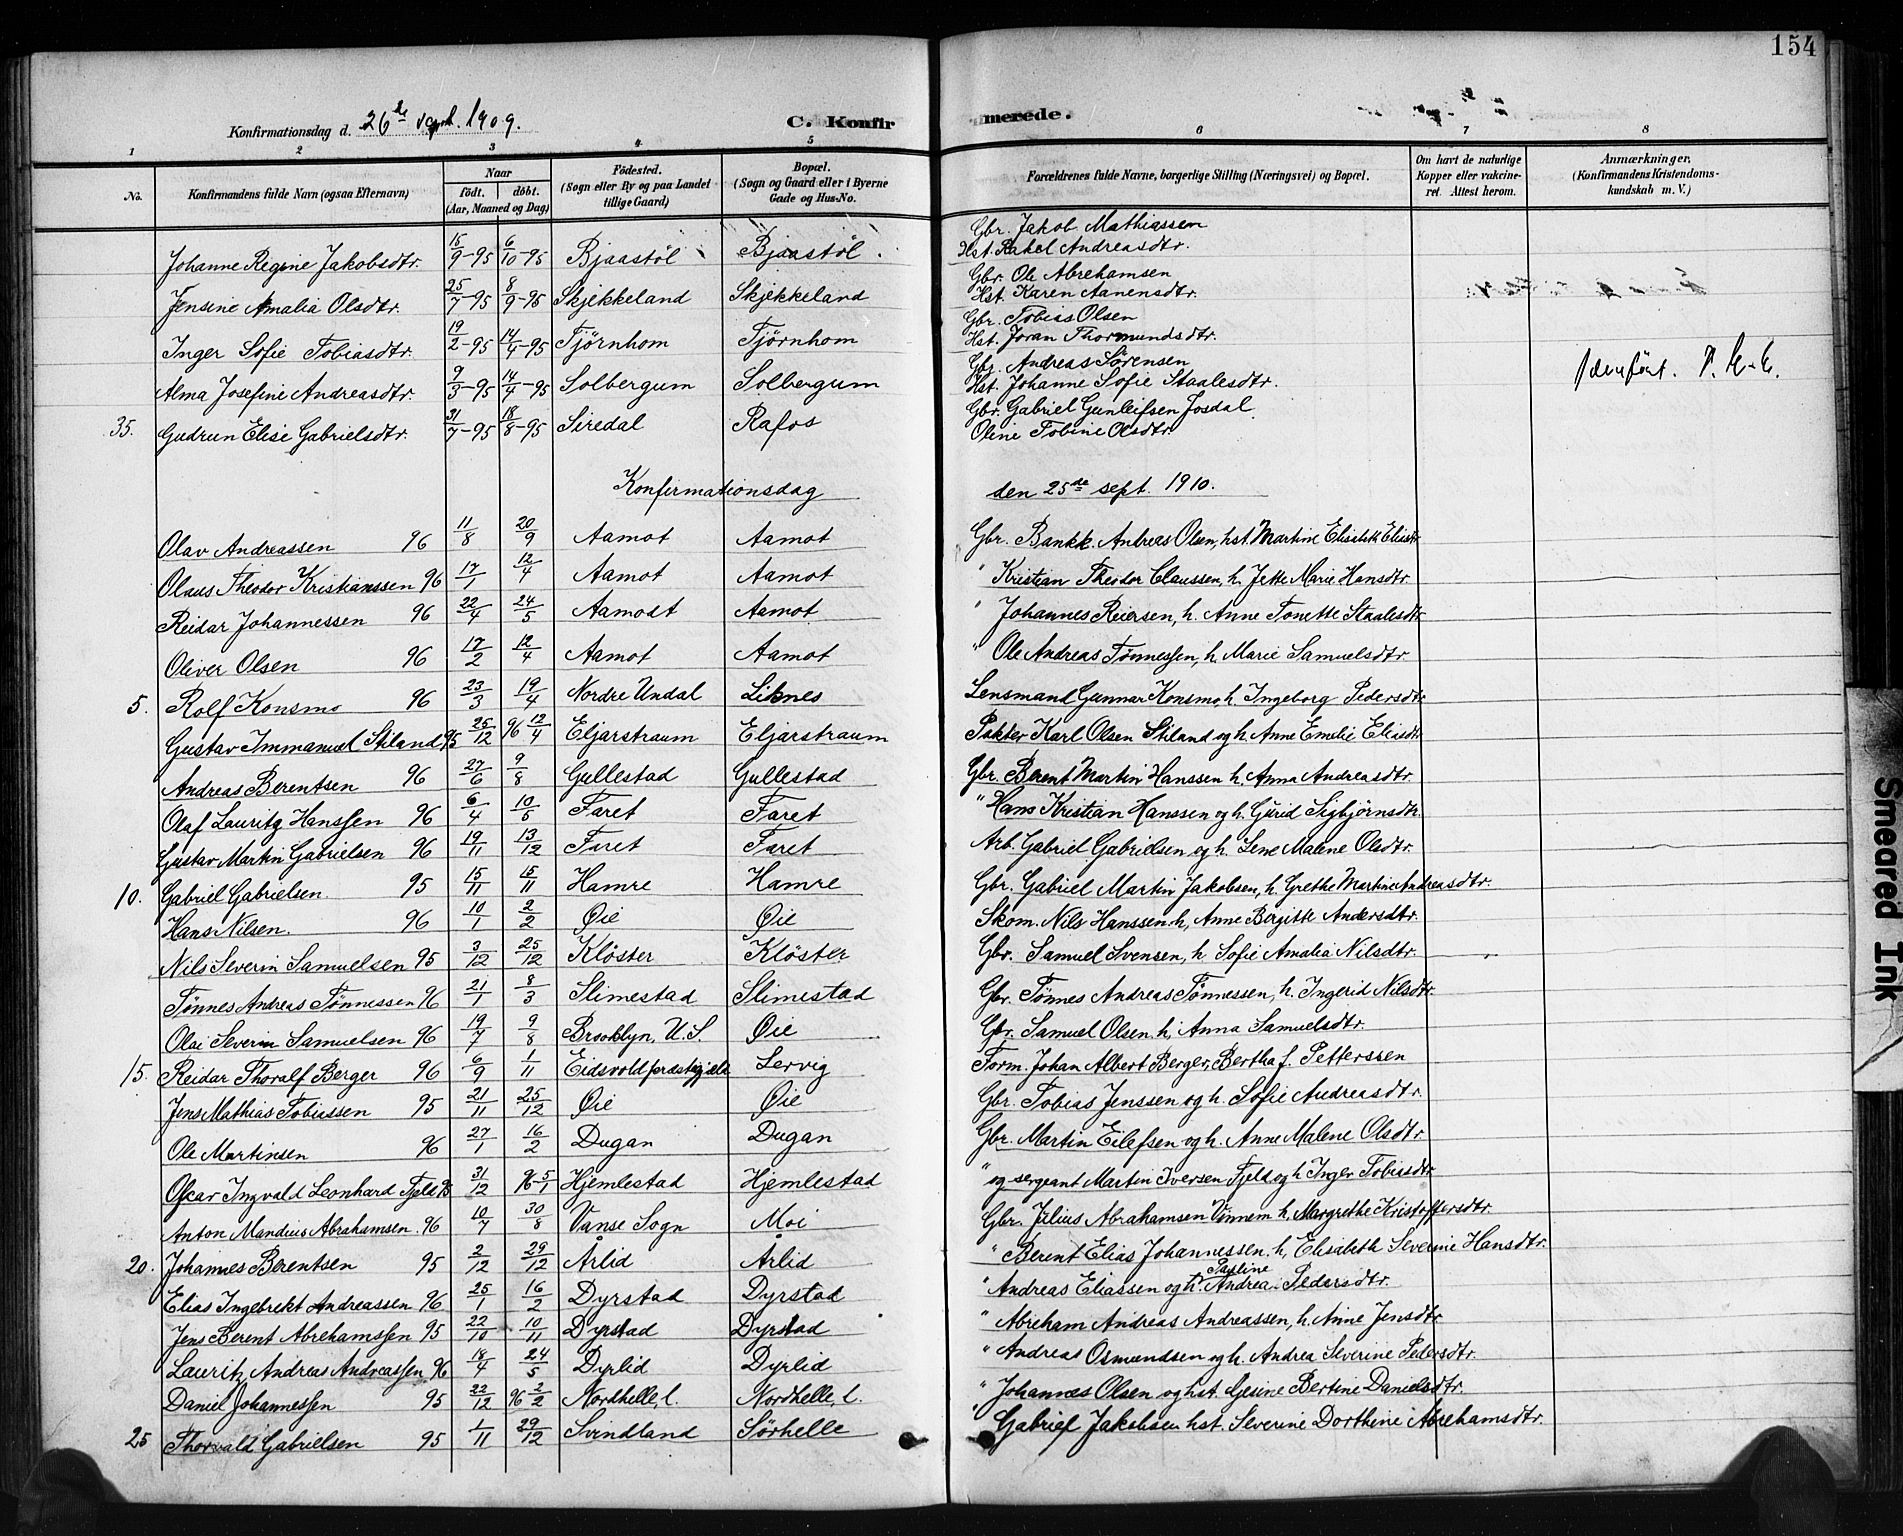 154
Konfirmationsdag d. 26de sept. 1909. C. Konfirmerede.
1 2 3 4 5 6 7 8
No. Konfirmandens fulde Navn (ogsaa Efternavn) Naar født, døbt. (Aar, Maaned og Dag) Fødested. (Sogn eller By og paa Landet tillige Gaard) Bopæl. (Sogn og Gaard eller i Byerne Gade og Hus-No. Forældrenes fulde Navne, borgerlige Stilling (Næringsvei) og Bopæl. Om havt de naturlige Kopper eller vakcineret. Attest herom. Anmærkninger. (Konfirmandens Kristendomskundskab m. V.)
Johanne Regine Jakobsdtr. 15/9-95 6/10-95 Bjaastöl Bjaastöl. Gbr. Jakob Mathiassen Hst. Rakel Andreasdtr.
Jensine Amalia Olsdtr. 25/7-95 8/9-95 Skjekkeland Skjekkeland Gbr. Ole Abrehamsen Hst. Karen Aanensdtr.
Inger Sofie Tobiasdtr. 19/2-95 14/4-95 Tjørnhom Tjörnhom Gbr. Tobias Olsen Hst. Joran Thormundsdtr.
Alma Josefine Andreasdtr. 9/3-95 14/4-95 Solbergum Solbergum Gbr. Andreas Sörensen Hst. Johanne Sofie Staalesdtr.
35. Gudrun Elise Gabrielsdtr. 31/7-95 18/8-95 Siredal Rafos Gbr. Gabriel Gunleifsen Josdal Oline Tobine Olsdtr.
Konfirmationsdag den 25de sept. 1910.
Olav Andreassen 96 11/8 20/9 Aamot Aamot Gbr. Bankk. Andreas Olsen, hst. Martine Elisabeth Eliasdtr.
Olaus Theodor Kristianssen 96 17/1 12/4 Aamot Aamot " Kristian Theodor Claussen, h. Jette Marie Hansdtr.
Reidar Johannessen 96 22/4 24/5 Aamodt Aamot " Johannes Reiersen, h. Anne Tonette Staalesdtr.
Oliver Olsen 96 17/2 12/4 Aamot Aamot " Ole Andreas Tönnessen, h. Marie Samuelsdtr.
5. Rolf Konsmo 96 23/3 19/4 Nordre Undal Liknes Lensmand Gunnar Konsmo h. Ingeborg Pedersdtr.
Gustav Immanuel Stiland 95 25/12 96 12/4 Eljarstraum Eljarstraum Pakter Karl Olsen Stiland og h. Anne Emelie Eliasdtr.
Andreas Berentsen 96 27/6 9/8 Gullestad Gullestad Gbr. Berent Martin Hanssen h. Anna Andreasdtr.
Olaf Lauritz Hanssen 96 6/4 10/5 Faret Faret " Hans Kristian Hanssen og h. Gurid Sigbjörnsdtr.
Gustav Martin Gabrielsen 96 19/11 13/12 Faret Faret Arb. Gabriel Gabrielsen og h. Lene Malene Olsdtr.
10. Gabriel Gabrielsen. 95 15/11 15/11 Hamre Hamre Gbr. Gabriel Martin Jakobsen, h. Grethe Martine Andreasdtr.
Hans Nilsen. 96 10/1 2/2 Øie Øie Skom. Nils Hanssen h, Anne Bergitte Andersdtr.
Nils Severin Samuelsen 95 3/12 25/12 Klöster Klöster Gbr. Samuel Svensen, h Sofie Amalia Nilsdtr.
Tønnes Andreas Tønnessen 96 21/1 8/3 Slimestad Slimestad Gbr. Tönnes Andreas Tönnessen, h. Ingerid Nilsdtr.
Olai Severin Samuelsen 96 19/7 9/8 Brooklyn, U.S. Øie Gbr. Samuel Olsen h, Anna Samuelsdtr.
15. Reidar Thoralf Berger 96 6/9 1/11 Eidsvold præstegjæld Lervig Form. Johan Albert Berger, Bertha f. Pettersren
Jens Mathias Tobiassen 95 21/11 25/12 Øie Øie Gbr. Tobias Jenssen og h. Sofie Andreasdtr.
Ole Martinsen 96 27/1 16/2 Dugan Dugan Gbr. Martin Eilefsen og h. Anne Malene Olsdtr.
Oscar Ingvald Leonhard Fjeld 95 31/12 96-5/1 Hjemlestad Hjemlestad " og sergeant Martin Iversen Fjeld og h Inger Tobiasdtr.
Anton Mandius Abrahamsen. 96 10/7 30/8 Vanse Sogn Moi Gbr. Julius Abrahamsen Vinnem h, Margrethe Kristoffersdtr.
20. Johannes Berentsen 95 2/12 29/12 Årlid Årlid " Berent Elias Johannessen. h, Elisabeth Severine Hansdtr.
Elias Ingebrekt Andreassen 96 25/1 16/2 Dyrstad Dyrstad " Andreas Eliassen og h. Pauline Andrea Pedersdtr.
Jens Berent Abrehamssen 95 22/10 10/11 Dyrstad Dyrstad " Abreham Andreas Andreassen, h. Anne Jensdtr.
Lauritz Andreas Andreassen 96 18/4 24/5 Dyrlid Dyrlid " Andreas Osmundsen og h. Andrea Severine Pedersdtr.
Daniel Johannessen 95 22/12 96 2/2 Nordhelle, l. Nordhelle, l. " Johannes Olsen og hst. Gesine Bertine Danielsdtr.
25 Thorvald Gabrielsen 95 1/11 29/12 Svindland Sörhelle " Gabriel Jakobsen hst. Severine Dorthine Abrehamsdtr.
Smeared Ink